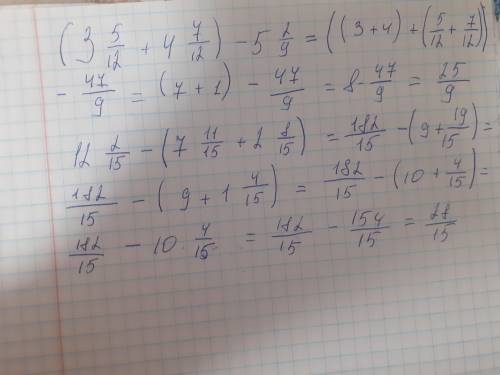 (3 5/12 + 4 7/12) − 5 2/9 = ((3+4) + (5/12 + 7/12))
− 47/9 = (7+1) − 47/9 = 8 − 47/9 = 25/9
12 2/15 − (7 11/15 + 2 8/15) = 182/15 − (9 + 19/15) =
182/15 − (9 + 1 4/15) = 182/15 − (10 + 4/15) =
182/15 − 10 4/15 = 182/15 − 154/15 = 28/15